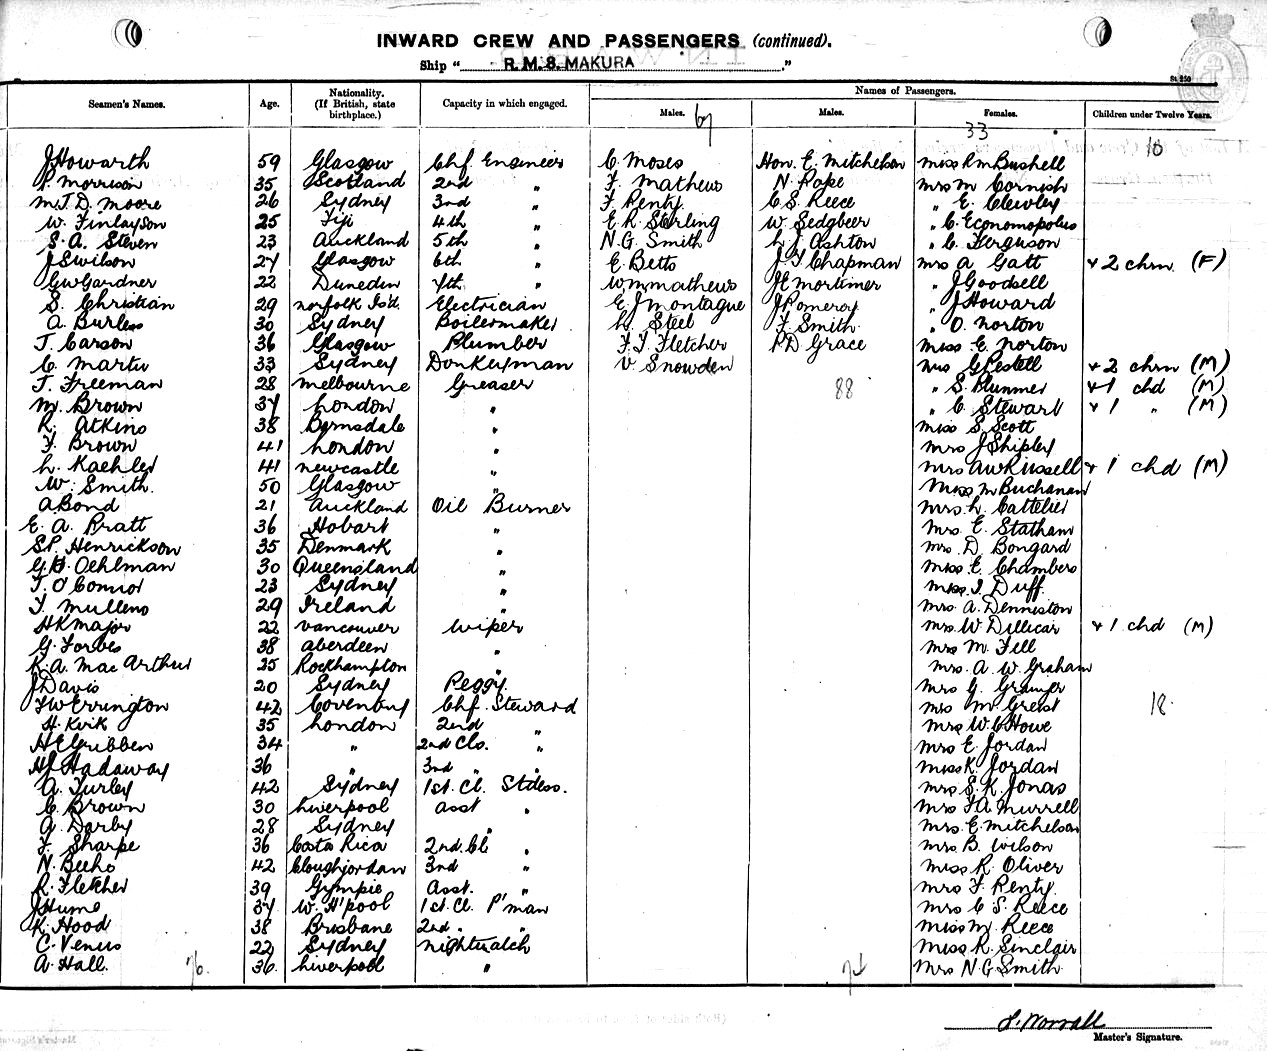 INWARD CREW AND PASSENGERS (continued).
Ship " R.M.S. MAKURA "
St. 250
Seamen's Names. Age. Nationality. (If British, state birthplace.) Capacity in which engaged. Names of Passengers.
Males. Males. Females. Children under Twelve Years.
67 33 10
J Howarth 59 Glasgow Chf Engineer C. Moses Hon. E. Mitchelson Miss R M Bushell
P. Morrison 35 Scotland 2nd " F. Mathews N. Pope Mrs M Cornish
McI. D. Moore 26 Sydney 3rd " F. Penty C S Reece " E. Clewley
W. Finlayson 25 Fiji 4th " E. R. Sterling W. Sedgbeer " C. Economopolus
S. A. Steven 23 Auckland 5th " N. G. Smith L J Ashton " C. Ferguson
J S Wilson 27 Glasgow 6th " E. Betts J T Chapman Mrs A Gatt + 2 chrn (F)
G W Gardner 22 Dunedin 7th " W M Mathews J E Mortimer " J Goodsell
S. Christian 29 Norfolk Is'd. Electrician E J Montague J Pomeroy " J Howard
A. Burless 30 Sydney Boilermaker L. Steel F. Smith " O. Norton
T. Carson 36 Glasgow Plumber F. T. Fletcher P D Grace Miss E. Norton
C. Martin 33 Sydney Donkeyman V. Snowden Mrs G Pestell + 2 chrn (M)
T. Freeman 28 Melbourne Greaser 88 " S. Plummer + 1 chd (M)
M. Brown 37 London " " C. Stewart + 1 " (M)
R. Atkins 38 " Miss S. Scott
F. Brown 41 London " Mrs J Shipley
L. Kaehler 41 Newcastle " Mrs A W Russell + 1 chd (M)
W. Smith. 50 Glasgow " Miss M Buchanan
A Bond 21 Auckland Oil Burner Mrs L. Cattelier
E. A. Pratt 36 Hobart " Mrs E. Statham
S P. Henrickson 35 Denmark " Mrs. D. Bongard
G. H. Oehlman 30 Queensland " Miss E. Chambers
T. O'Connor 23 Sydney " Miss I. Duff
T. Mullens 29 Ireland " Mrs. A. Denniston
H K Major 22 Vancouver Wiper Mrs. W. Dillicar + 1 chd (M)
G. Forbes 38 Aberdeen " Mrs M. Fell
K. A. MacArthur 25 Rockhampton " Mrs. A. W. Graham
J Davis 20 Sydney Peggy. Mrs G. Grainger
F W Errington 42 Coventry Chf. Steward Mrs M. Greist 18.
H. Kirk 35 London 2nd " Mrs W. C Howe
H E Gribben 34 " 2nd Cls. " Mrs E. Jordan
H J Hadaway 36 " 3rd " " Miss K. Jordan
A. Turley 42 Sydney 1st. Cl. Stdess. Mrs S. K. Jonas
C. Brown 30 Liverpool Asst " Mrs F A Murrell
G. Darby 28 Sydney " Mrs. E. Mitchelson
F. Sharpe 36 Costa Rica 2nd. Cl " Mrs. B. Wilson
N. Beeho 42 Cloughjordan 3rd " Miss R. Oliver
R. Fletcher 39 Gympie Asst. " Mrs F. Penty.
J Hume 37 W. H'pool 1st. Cl. P'man Mrs C. S. Reece
K. Hood 38 Brisbane 2nd. " Miss M. Reece
C. Venus 22 Sydney Nightwatch Miss R. Sinclair
A. Hall. 76. 36. Liverpool " Mrs N. G. Smith.
J. Worrall
Master's Signature.